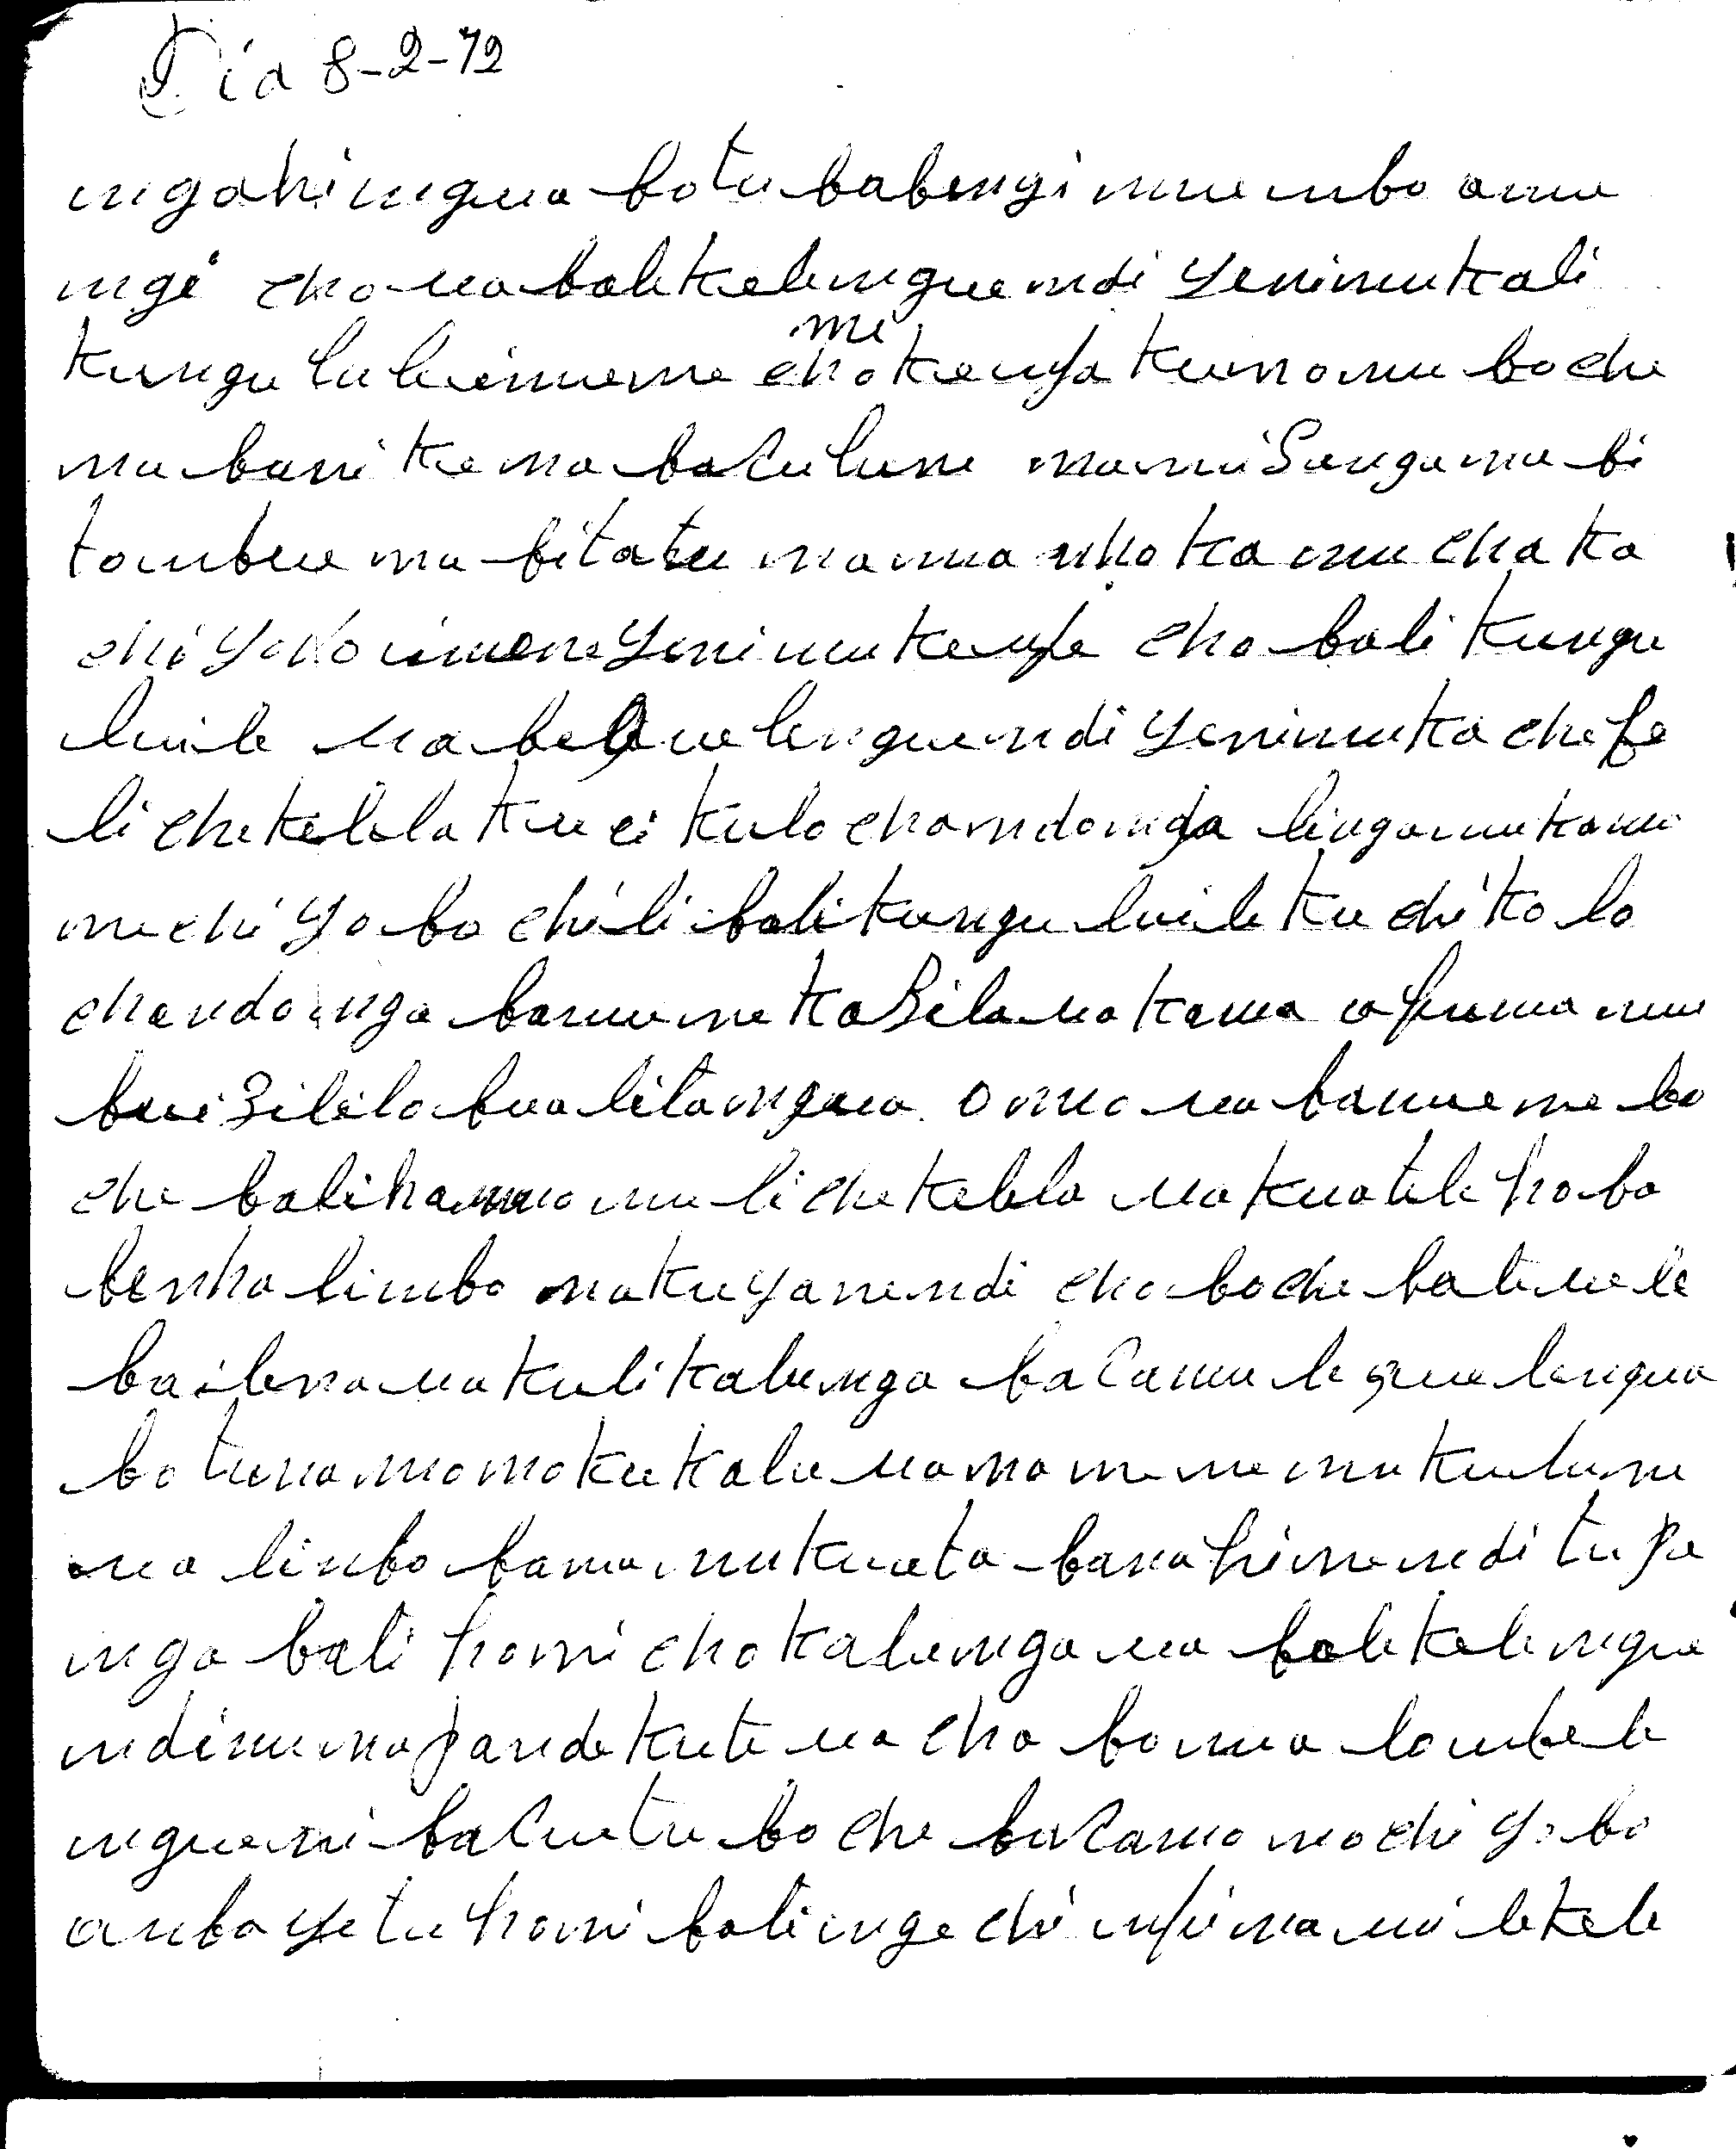 Dia 8-2-72
ngahingua botu babengi muembo amu
ngi cho ua balekelengue ndi yenimukali
kungu luhiemueme chomi kaufa kuma mu boche
mu bani kama baculune mami sangama bi
tambue ma bitatu mama nhoka mu chaka
chi yoko imene yeni mukaufe cho bali kungu
luile ua belauelengue ndi yenimuka chefe
li chekelela ku ei kulo chandonga lingamukamu
muchi yabo chili balikungu luile ku chikolo
chandonga bamuemekasila uakama afuma mu
buisilila bua litangua omo ua bamueme bo
che balihamuo mu lichekelela uakuatele habo
benha limbo makuyanendi cho boche bateuele
bailena uakulikalunga bacamu lequelengua
botu namomo kukalu uamamene mukulune
ua limbo bamo mukueta banahime ndi tupa
nga bali hami cho kalunga ua balekelengue
ndi mu mapande kuteua cho bamua lombele
nguemi bacuetu boche bacamo mochi yabo
amba yetu hami balinge chi mfimami lekele